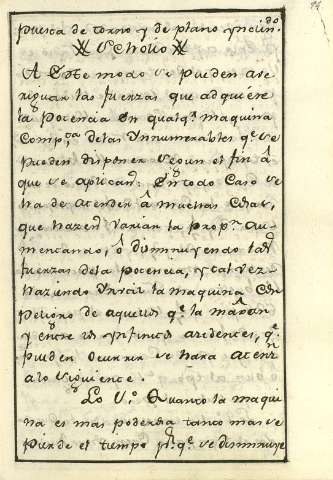 puesta de torno y de plano ynclin.do
Scholio
A Este modo se pueden ave
riguar las fuerzas que adquiere
la Potencia En qualq.a maquina
Comp.ta de las Ynnumerables q.e se
pueden disponer segun el fin â
que se aplican: En todo Caso se
ha de atender â muchas Cosas,
que hazen variar la Prop.n Au
mentando, ô disminuyendo las
fuerzas de la Potencia, y tal vez
haziendo Ynutil la maquina Con
peligro de aquellos q.e la
y entre los ynfinitos acidentes, q.e
pueden Ocurrir se hara atenz.n
a lo siguiente.
Lo 1.o Quanto la maqui
na es mas poderosa tanto mas se
pierde el tiempo p.r q.e se disminuye